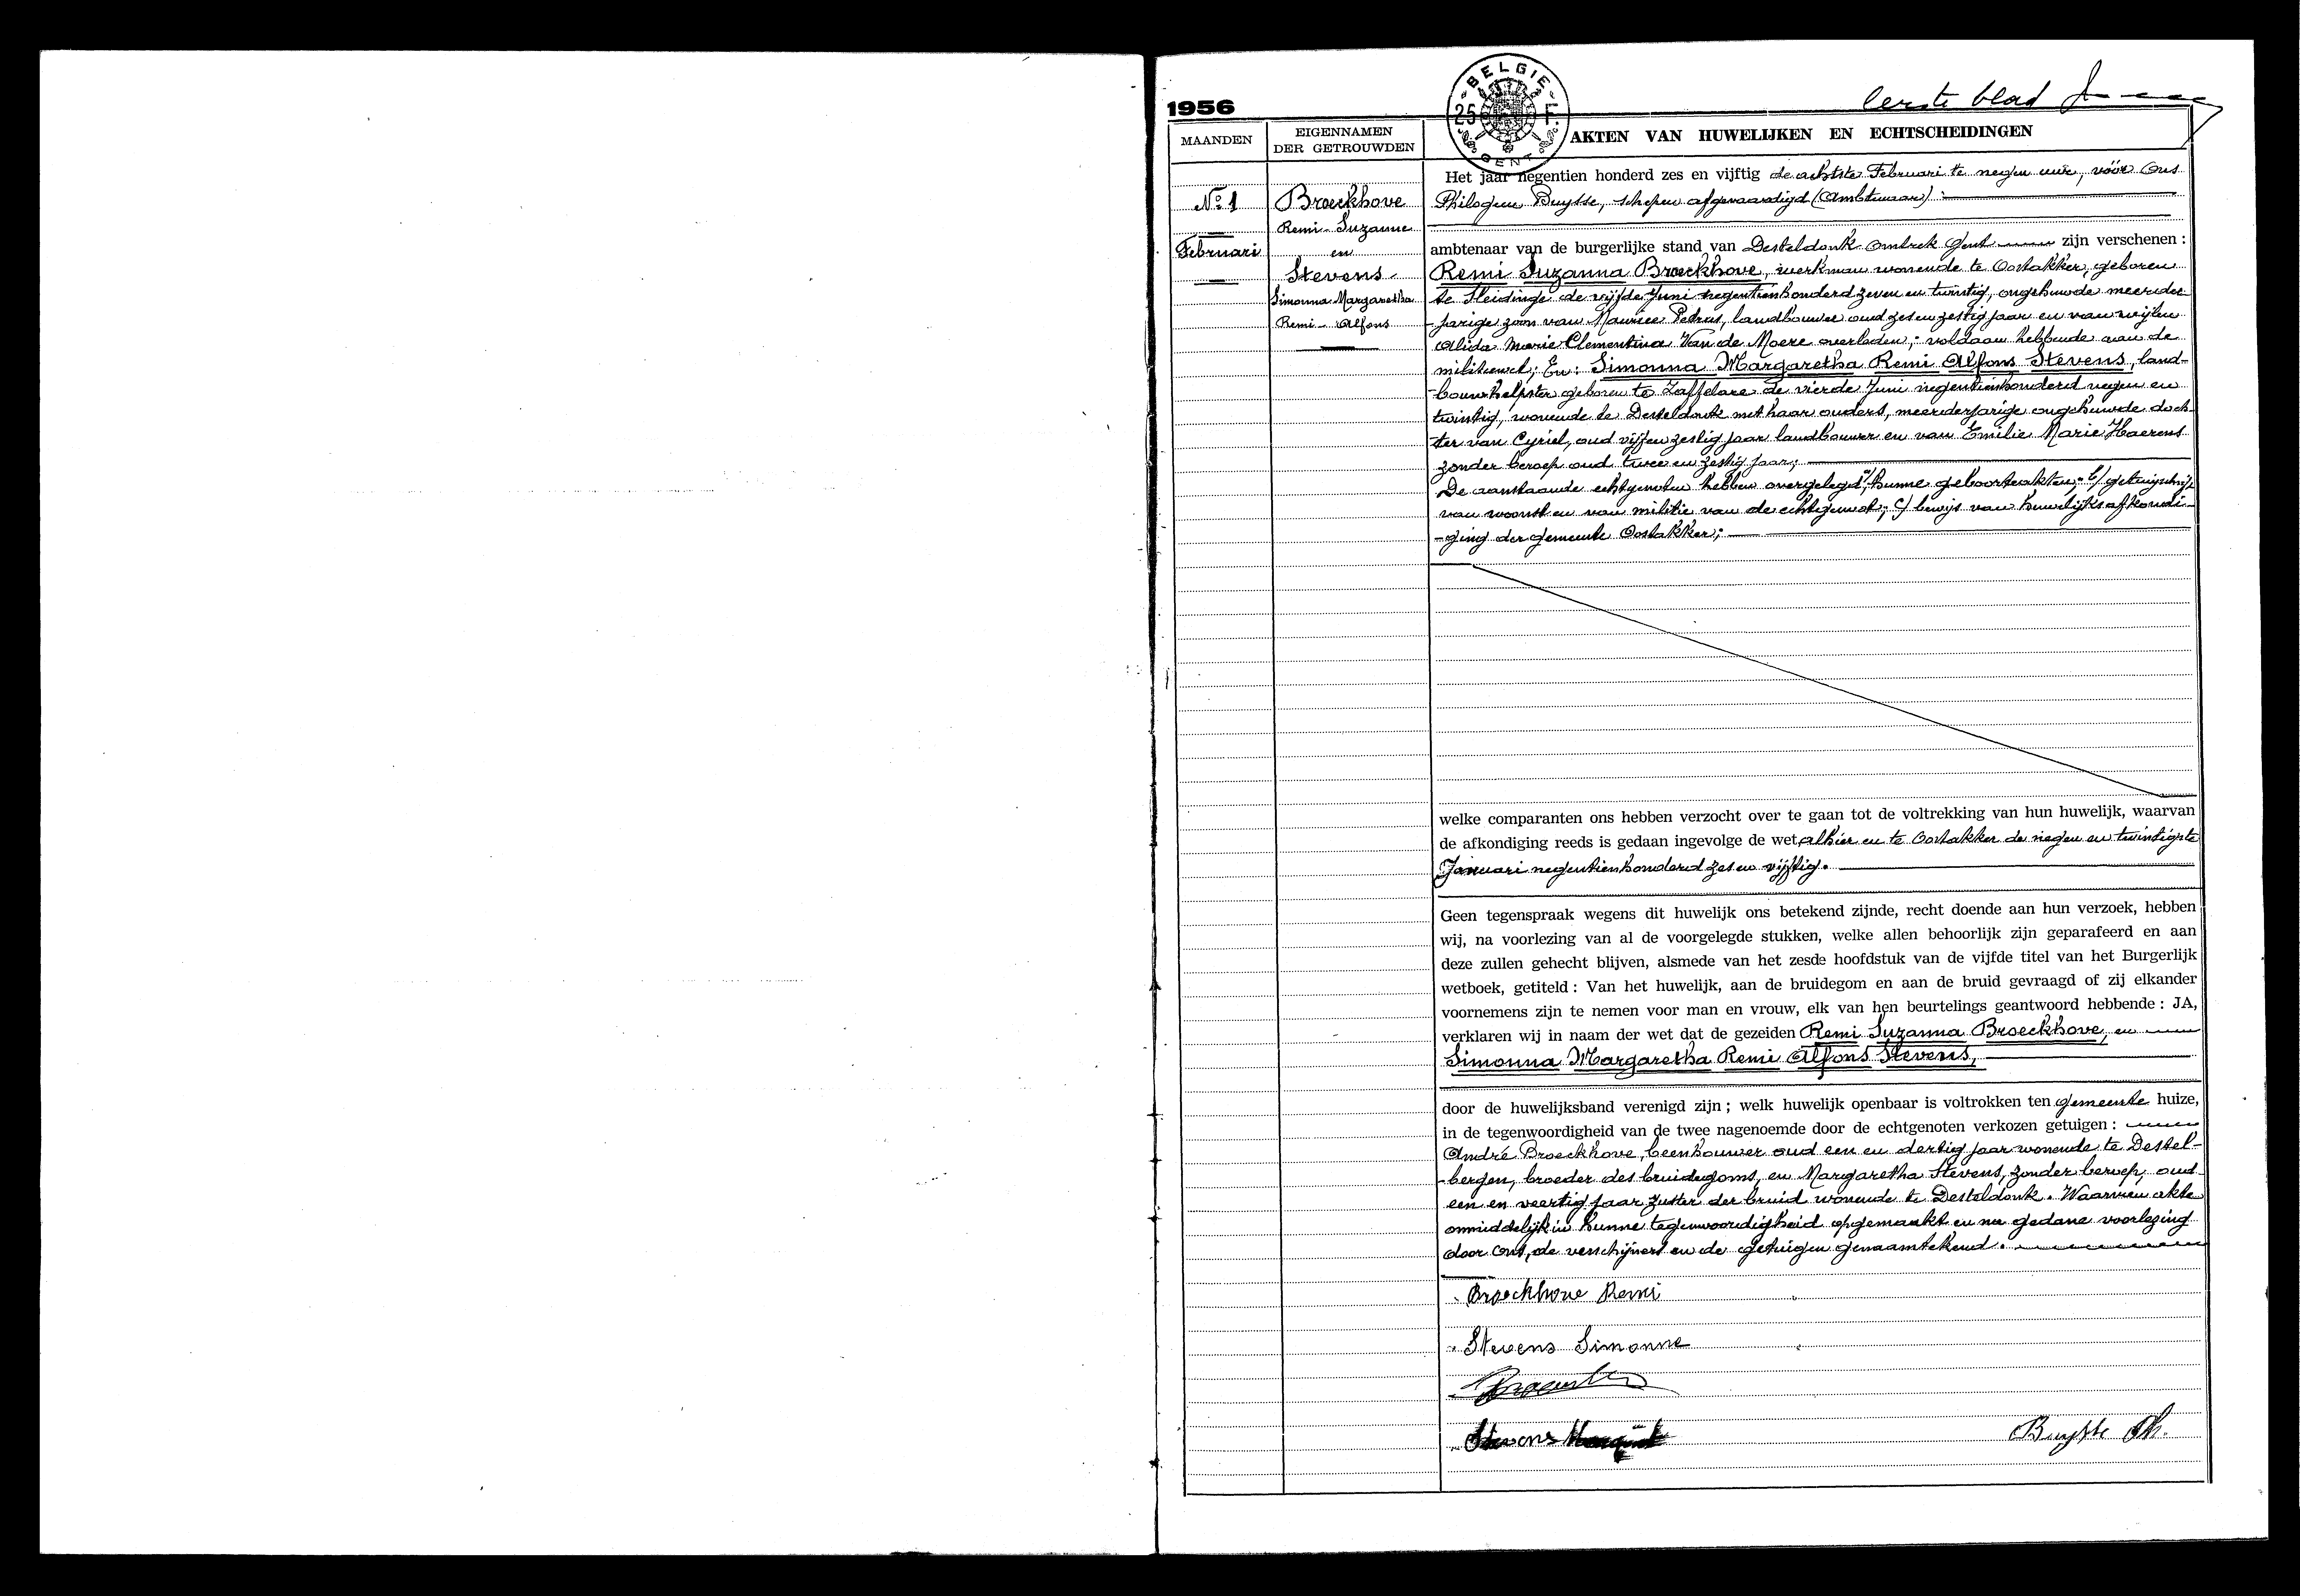 eerste blad
1956
BELGIE
25 F.
GENT
MAANDEN
EIGENNAMEN
DER GETROUWDEN
AKTEN VAN HUWELIJKEN EN ECHTSCHEIDINGEN
No 1
Februari
Broeckhove
Remi - Suzanne
en
Stevens
Simonna Margaretha
Remi - Alfons
Het jaar negentien honderd zes en vijftig de achtste Februari te negen ure, vóór Ons
Philogeen Buysse, schepen afgevaardigd (Ambtenaar) :
ambtenaar van de burgerlijke stand van Desteldonk Omtrek Gent zijn verschenen :
Remi Suzanna Broeckhove, werkman wonende te Oostakker, geboren
te Sleidinge de vijfde Juni negentienhonderd zeven en twintig, ongehuwde meerder-
-jarige zoon van Maurice Petrus, landbouwer oud zes en zestig jaar en van wijlen
Alida Marie Clementina Van de Moere overleden; voldaan hebbende aan de
militiewet; En: Simonna Margaretha Remi Alfons Stevens, land-
-bouwhelpster geboren te Zaffelare de vierde Juni negentienhonderd negen en
twintig, wonende te Desteldonk met haar ouders, meerderjarige ongehuwde doch-
-ter van Cyriel, oud vijf en zestig jaar landbouwer en van Emilie Marie Haerens
zonder beroep oud twee en zestig jaar;
De aanstaande echtgenoten hebben overgelegd a/ hunne geboorteakten; b/ getuigschrift
van woonst en van militie van de echtgenoot; c/ bewijs van huwelijksafkondi-
-ging der gemeente Oostakker;
welke comparanten ons hebben verzocht over te gaan tot de voltrekking van hun huwelijk, waarvan
de afkondiging reeds is gedaan ingevolge de wet, alhier en te Oostakker de negen en twintigste
Januari negentienhonderd zes en vijftig.
Geen tegenspraak wegens dit huwelijk ons betekend zijnde, recht doende aan hun verzoek, hebben
wij, na voorlezing van al de voorgelegde stukken, welke allen behoorlijk zijn geparafeerd en aan
deze zullen gehecht blijven, alsmede van het zesde hoofdstuk van de vijfde titel van het Burgerlijk
wetboek, getiteld : Van het huwelijk, aan de bruidegom en aan de bruid gevraagd of zij elkander
voornemens zijn te nemen voor man en vrouw, elk van hen beurtelings geantwoord hebbende : JA,
verklaren wij in naam der wet dat de gezeiden Remi Suzanna Broeckhove, en
Simonna Margaretha Remi Alfons Stevens,
door de huwelijksband verenigd zijn ; welk huwelijk openbaar is voltrokken ten gemeente huize,
in de tegenwoordigheid van de twee nagenoemde door de echtgenoten verkozen getuigen :
André Broeckhove, beenhouwer oud een en dertig jaar wonende te Destel-
-bergen, broeder des bruidegoms, en Margaretha Stevens, zonder beroep, oud
een en veertig jaar zuster der bruid wonende te Desteldonk. Waarvan akte
onmiddelijk in hunne tegenwoordigheid opgemaakt en na gedane voorlezing
door Ons, de verschijners en de getuigen genaamtekend.
Broeckhove Remi
Stevens Simonne
Stevens
Buysse Ph.